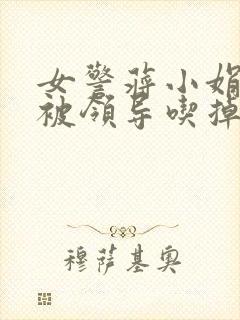 女警蒋小娟
被领导喫掉
穆萨基奥